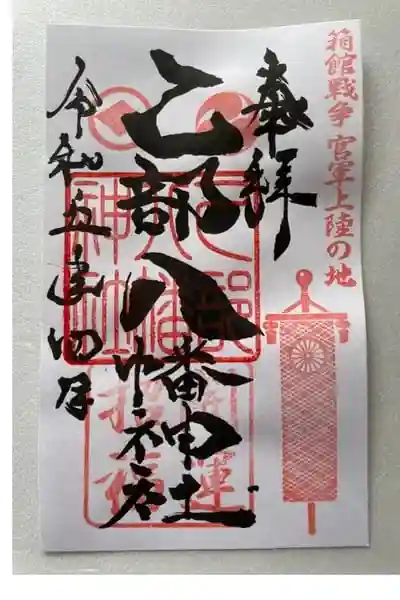 箱館戦争 官軍上陸の地
奉拝
乙部八幡神社
乙部八幡神社
令和五年四月